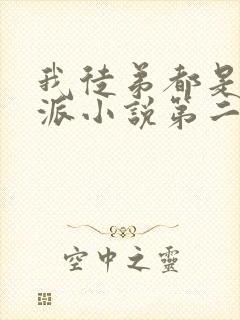 我徒弟都是
派小說第二
空中之靈